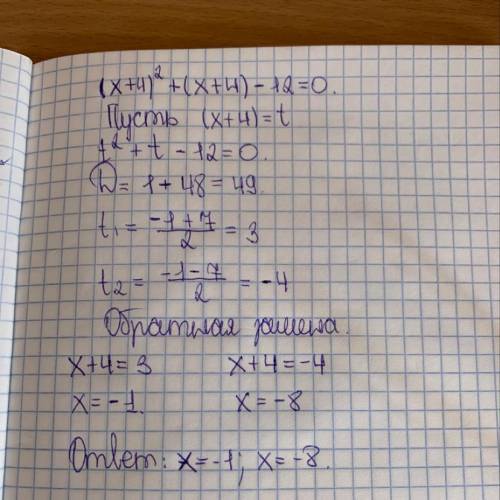 (x+4)²+(x+4)-12=0.
Пусть (x+4)=t
t²+t-12=0.
D=1+48=49.
t₁=(-1+7)/2=3
t₂=(-1-7)/2=-4
Обратная замена.
x+4=3 x+4=-4
x=-1. x=-8
Ответ: x=-1; x=-8.